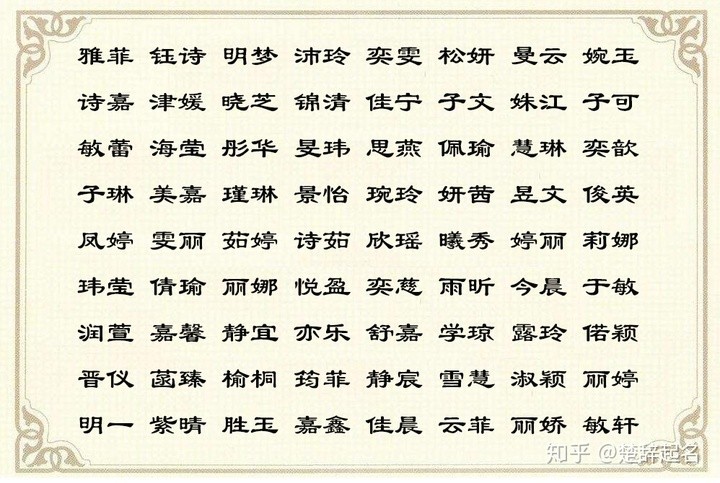 雅菲 钰诗 明梦 沛玲 奕雯 松妍 曼云 婉玉
诗嘉 津媛 晓芝 锦清 佳宁 子文 姝江 子可
敏蕾 海莹 彤华 旻玮 思燕 佩瑜 慧琳 奕歆
子琳 美嘉 瑾琳 景怡 琬玲 妍茜 昱文 俊英
凤婷 雯丽 茹婷 诗茹 欣瑶 曦秀 婷丽 莉娜
玮莹 倩瑜 丽娜 悦盈 奕慈 雨昕 今晨 于敏
润萱 嘉馨 静宜 亦乐 舒嘉 学琼 露玲 偌颖
晋仪 菡臻 榆桐 筠菲 静宸 雪慧 淑颖 丽婷
明一 紫晴 胜玉 嘉鑫 佳晨 云菲 丽娇 敏轩
知乎 @楚辞起名